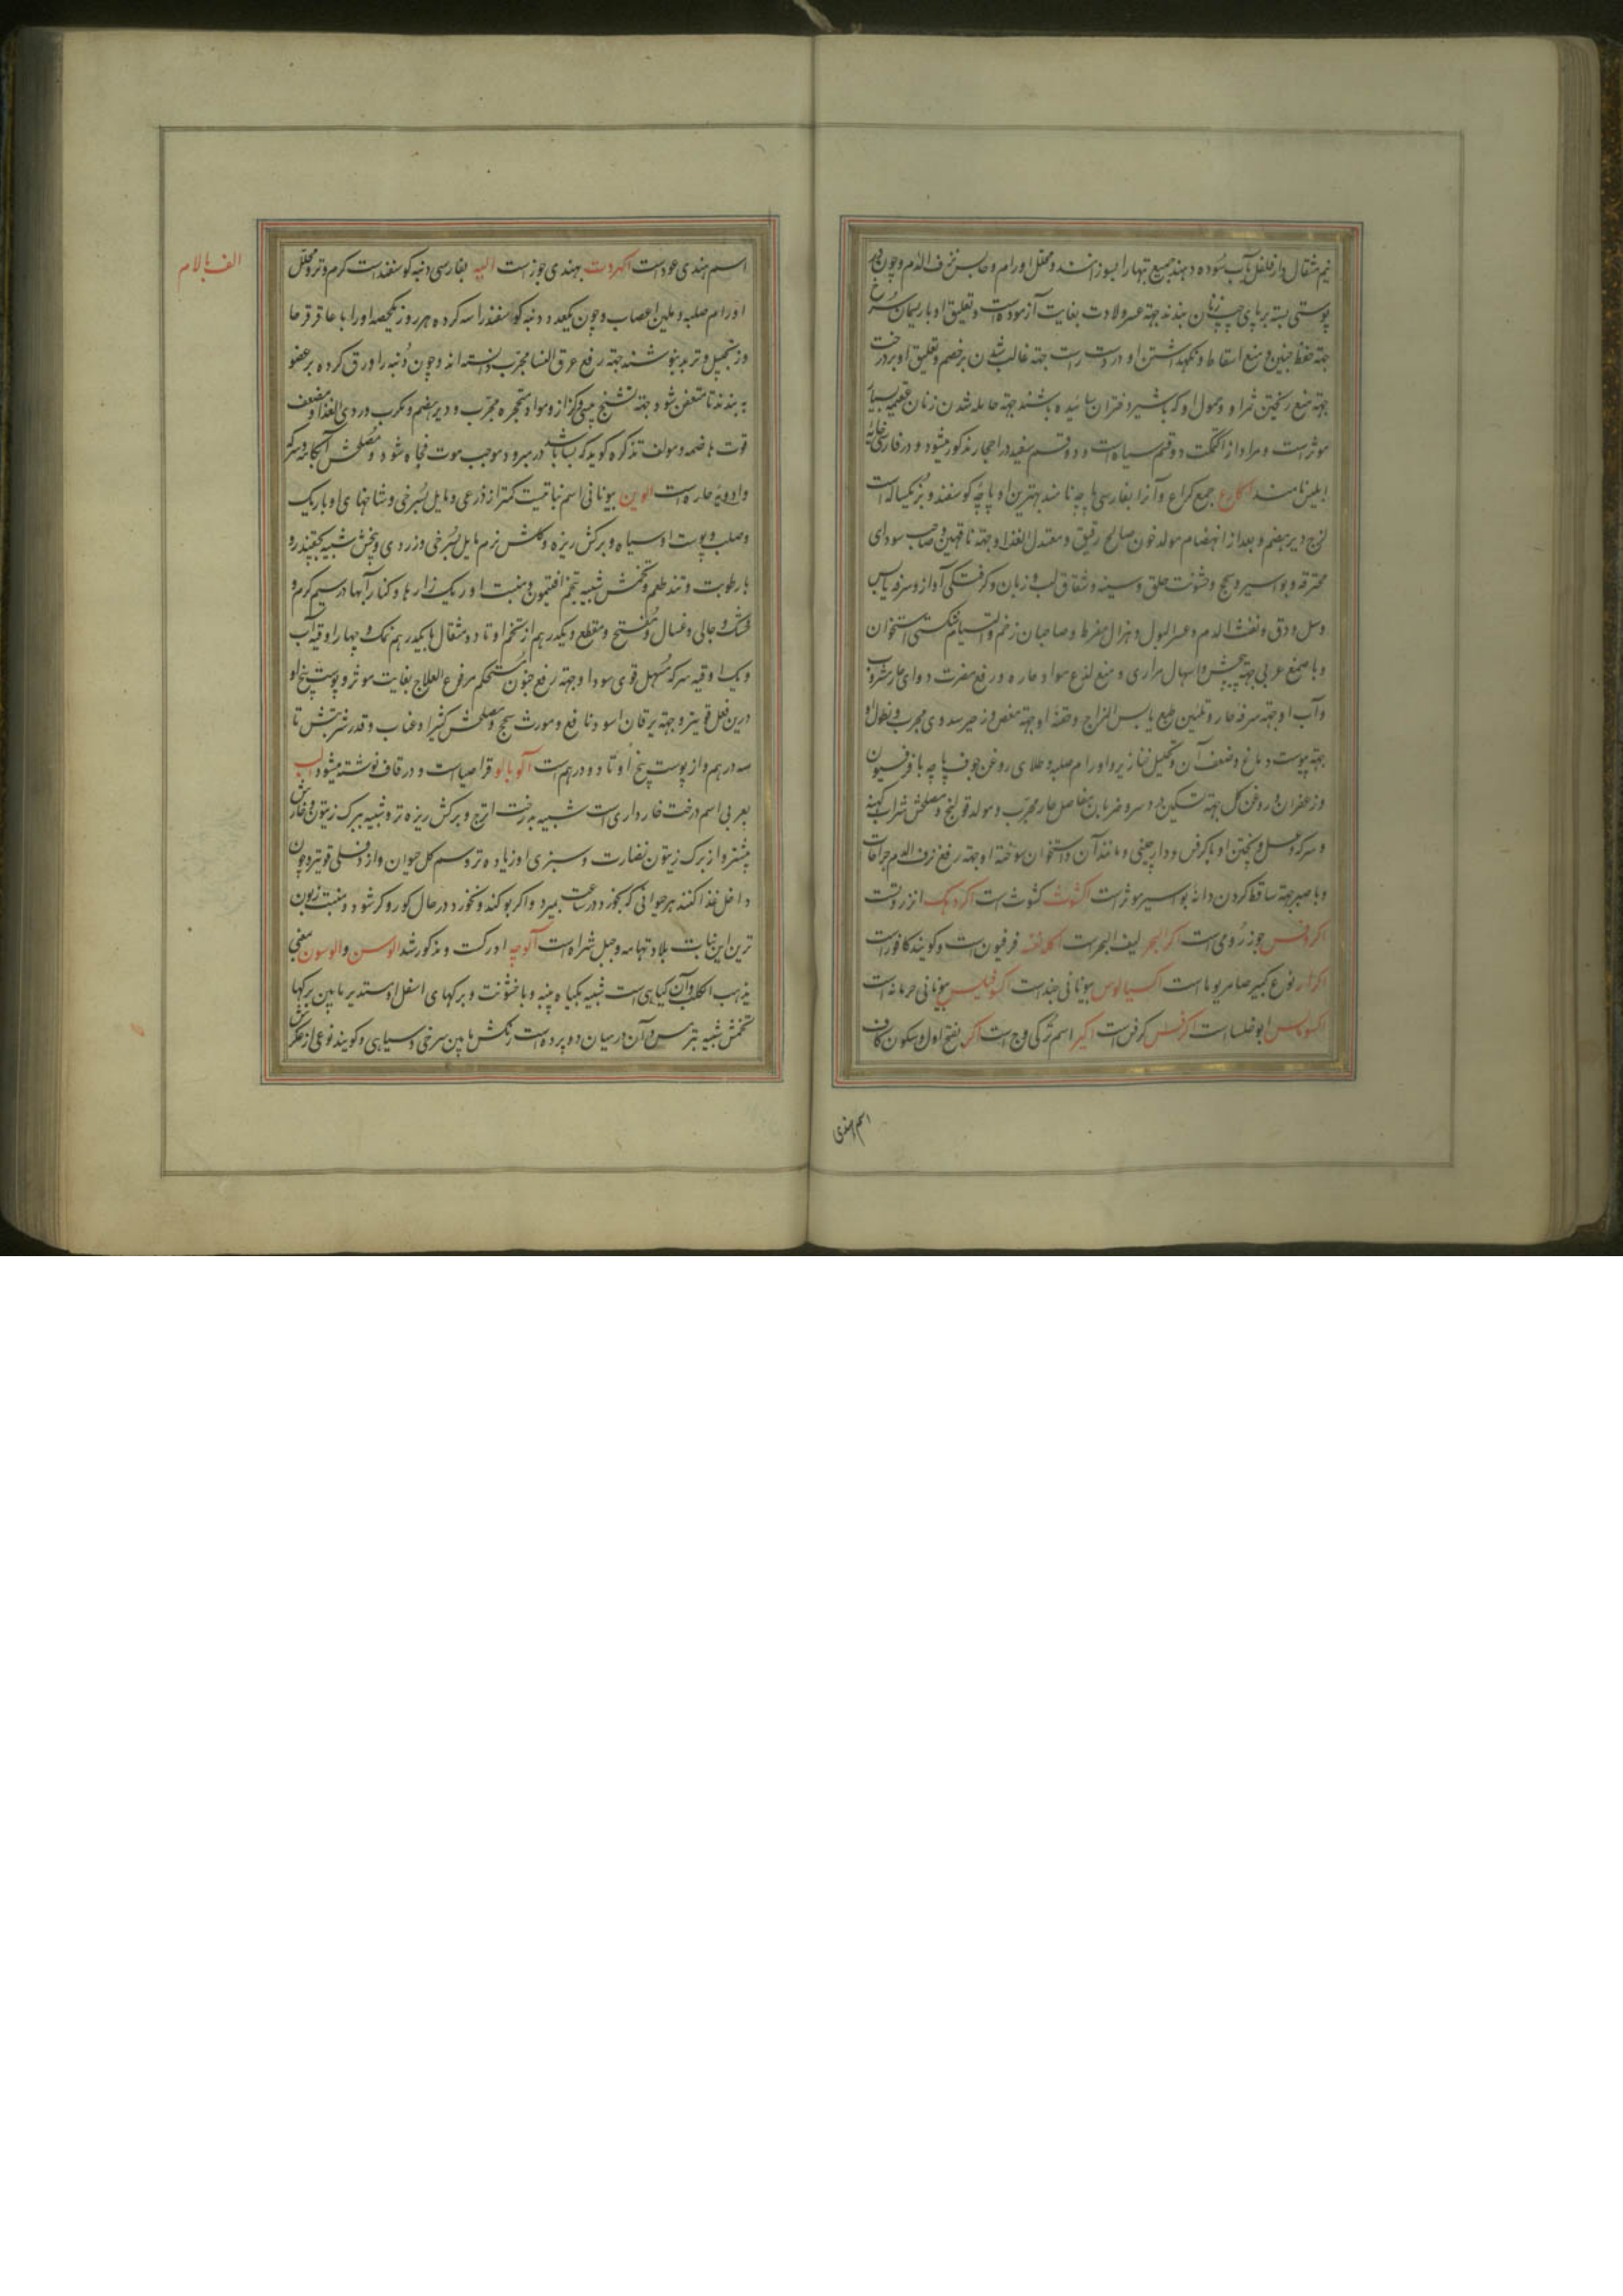 نیم مثقال و از فلفل بآب سوده دهند جمیع تبها را بسوزانند و محلل اورام و حابس نزف الدم و چون در
پوستی بسته بر پای چپ زنان بندند جهة عسر ولادت بغایت آزموده است و تعلیق او با ریسمان سرخ
جهة حفظ جنین و منع اسقاط و نگهداشتن او در دست راست جهة غالب شدن بر خصم و تعلیق او بر درخت
جهة منع ریختن ثمر او و حمول او که با شیر دختران سائیده باشند جهة حامله شدن زنان عقیمه بسیار
موثر است و مراد از اکتمکت دو قسم سیاه است و دو قسم سفید در احجار مذکور میشود و در فارسی خایه
ابلیس نامند اکارع جمع کراع و آنرا بفارسی پاچه نامند بهترین او پاچه کوسفند و بز یکساله است
لزج و دیر هضم و بعد از انهضام مولد خون صالح رقیق و معتدل الغذا و جهة ناقهین و صاحب سودای
محترقه و بواسیر و سحج و خشونت حلق و سینه و شقاق لب و زبان و کرفتکی آواز و سرفه یابس
وسل و دق و نفث الدم و عسر البول و هزال مفرط و صاحبان زخم و التیام شکستی استخوان
و با صمغ عربی جهة پیچش و اسهال مراری و منع لذع مواد حاره و رفع مضرت دوای حار مشروب
و آب او جهة سرفه حار و تلیین طبع یابس المزاج و حقنه او جهة مغص و زحیر سددی مجرب و نطول او
جهة یبوست دماغ و ضعف آن و تحلیل خنازیر و اورام صلبه و طلای روغن جوف پاچه با فرفیون
و زعفران و روغن کل جهة تسکین درد سر و ضربان مفاصل حار مجرب و مولد قولنج و مصلحش شراب کهنه
و سرکه و عسل و پختن او با کرفس و دارچینی و مانند آن و استخوان سوخته او جهة رفع نزف الدم جراحات
و با صبر جهة ساقط کردن دانه بواسیر موثر است اکشوث کشوث است اکردهک انزروتست
اکروفس جوز رومی است اکرالبحر لیف البحر است اکلنفسه فرفیون است و کویند کافور است
اکرار نوع کبیر صامریوما است اکسیالوس بیونانی جند است اکسوفیلیس بیونانی حرمانه است
اکسوماس ابوخلسا است اکرفس کرفس است اکیر اسم ترکی وج است اکر بفتح اول و سکون کاف
اسم هندی
الف با لام
اسم هندی عود است اکهروت بهندی جوز است الیه بفارسی دنبه کوسفند است کرم و تر و محلل
اورام صلبه و ملین اعصاب و چون یکعدد دنبه کوسفند را سه کرده هر روز یکحصه او را با عاقرقرحا
و زنجبیل و تربد بنوشند جهة رفع عرق النسا مجرب دانسته اند و چون دنبه را ورق کرده بر عضو
به بندند تا متعفن شود جهة تشنج یبسی و کزاز و مواد متحجره مجرب و دیر هضم و مکرب و ردی الغذا و مضعف
قوت هاضمه و مولف تذکره کوید که بسا باشد در مبرود موجب موت فجاه شود و مصلحش آبکامه و سرکه
و ادویه حاره است الوین بیونانی اسم نباتیست کمتر از ذرعی و مایل بسرخی و شاخهای او باریک
و صلب و پوست او سیاه و برکش ریزه و کلش نرم مایل بسرخی و زردی و بیخش شبیه بچقندر و
با رطوبت و تند طعم و تخمش شبیه بتخم افتیمون و منبت او ریک زارها و کنار آبها در سیم کرم و
خشک و جالی و غسال و مفتح و مقطع و یکدرهم از تخم او تا دو مثقال با یکدرهم نمک و چهار اوقیه آب
و یک اوقیه سرکه مسهل قوی سودا و جهة رفع جنون مستحکم مرفوع العلاج بغایت موثر و پوست بیخ او
درین فعل قویتر و جهة یرقان اسود نافع و مورث سحج و مصلحش کثیرا و عناب و قدر شربتش تا
سه درهم و از پوست بیخ او تا دو درهم است آلوبالو قراصیا است و در قاف نوشته میشود الب
بعربی اسم درخت خارداری است شبیه بدرخت اترج و برکش ریزه تر و شبیه ببرک زیتون و خارش
بیشتر و از برک زیتون نضارت و سبزی او زیاده تر و سم کل حیوان و از دفلی قویتر و چون
داخل غذا کنند هر حیوانی که بخورد در ساعت بمیرد و اکر بو کند و نخورد در حال کور و کر شود و منبت زبون
ترین این نبات بلاد تهامه و جبل شراه است آلوچه ادرکت و مذکور شد الوسن و الوسون یعنی
یذهب الکلب و آن کیاهی است شبیه بکیاه پنبه و با خشونت و برکهای اسفل او مستدیر مابین برکها
تخمش شبیه بترمس و آن در میان دو پرده است رنکش مابین سرخی و سیاهی و کویند نوعی از عکرش